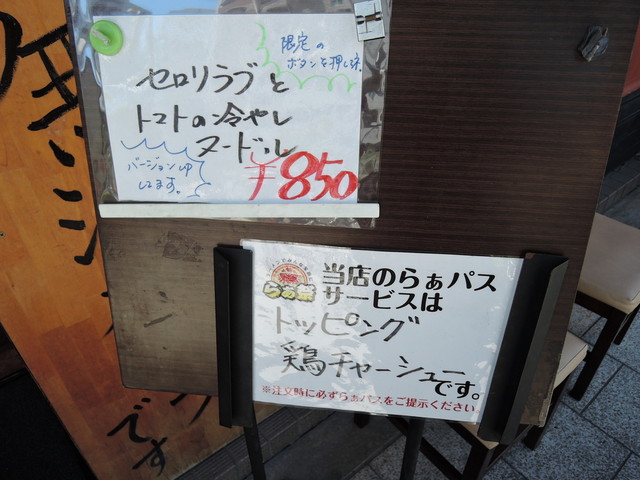 限定の
ボタンを押し
セロリラブと
トマトの冷やし
ヌードル
¥850
当店のらぁパス
サービスは
らぁ祭
トッピング
鶏チャーシュー
です。
※注文時に必ずらぁパスをご提示ください
です